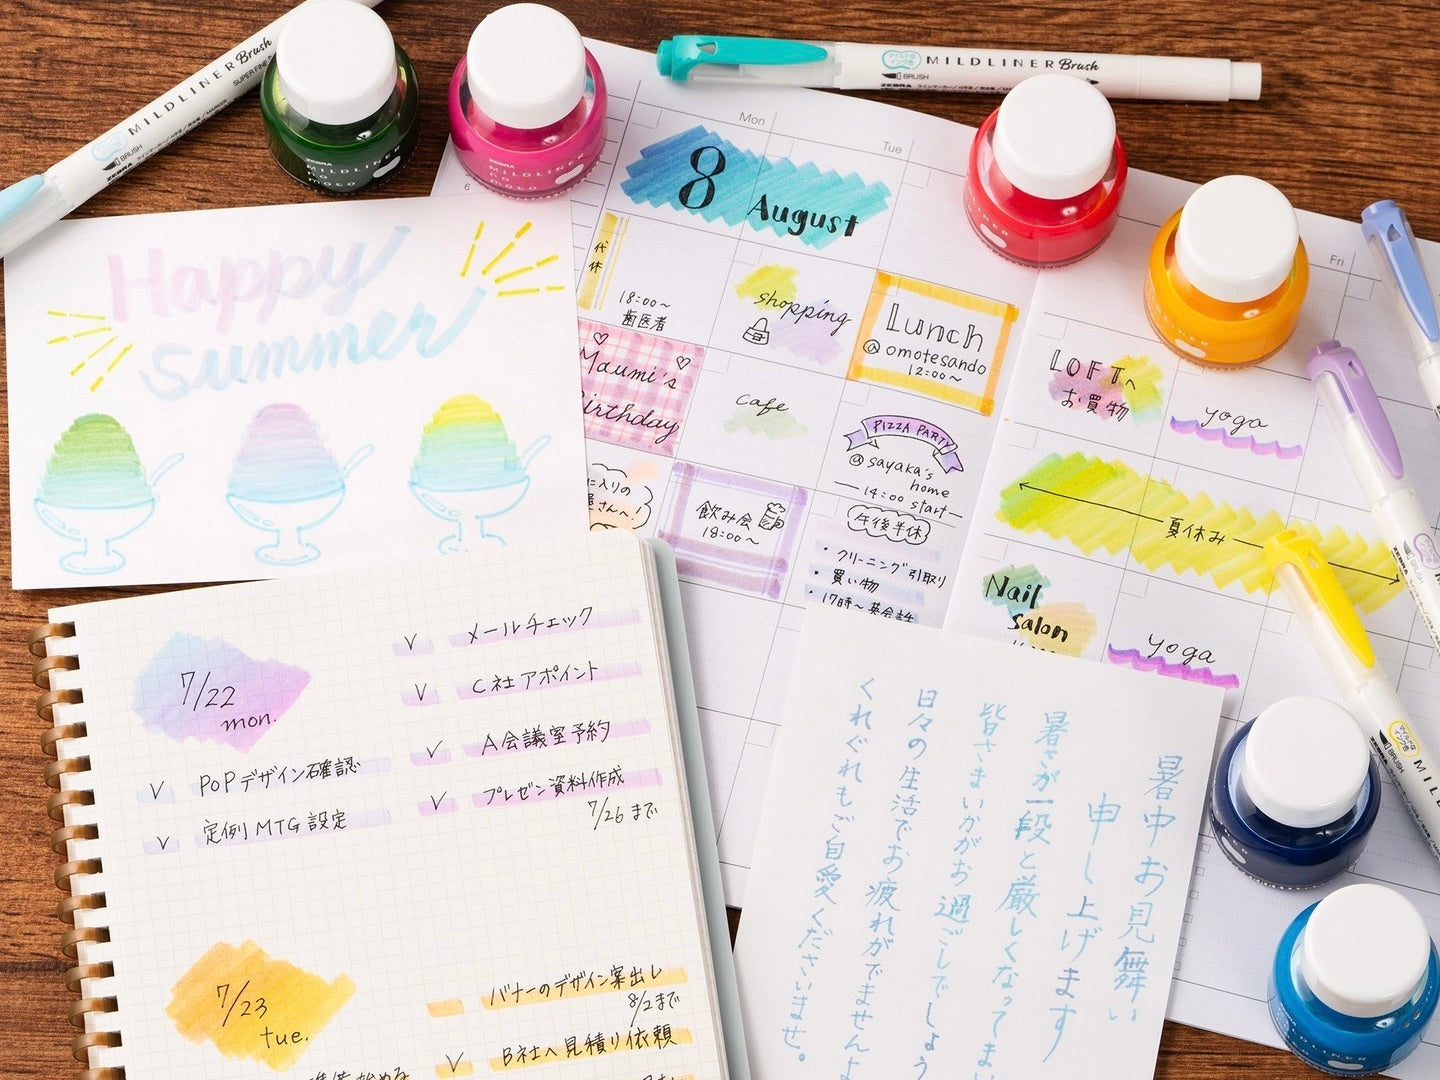 MILDLINER Brush
SUPER FINE
BRUSH
ZEBRA
ZEBRA
MILDLINER
no
moto
ZEBRA
MILDLINER
no
moto
MILDLINER Brush
BRUSH
ZEBRA
Happy
Summer
6
Mon
Tue
Fri
8 August
代休
18:00~
歯医者
shopping
Lunch
@omotesando
12:00~
Mayumi's
Birthday
cafe
PIZZA PARTY
@sayaka's
home
14:00 start
飲み会
18:00~
午後半休
・クリーニング引取り
・買い物
・17時~英会話
LOFTへ
お買物
yoga
夏休み
Nail
salon
yoga
7/22
mon.
✓ POPデザイン確認
✓ 定例MTG設定
✓ メールチェック
✓ C社アポイント
✓ A会議室予約
✓ プレゼン資料作成
7/26まで
7/23
tue.
バナーのデザイン案出し
8/2まで
✓ B社へ見積り依頼
暑中お見舞い
申し上げます
暑さが一段と厳しくなってまい
皆さまいかがお過ごしでしょう
日々の生活でお疲れがでませんよ
くれぐれもご自愛くださいませ。